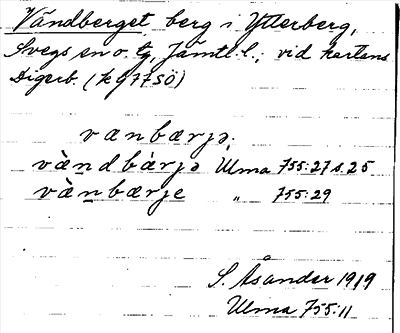 Vändberget, berg i Ytterberg,
Svegs sn o. tg, Jämtl. l.; vid kartans
Digerb. (k 977SÖ)
vænbærjə;
vœ̀ndbàrjə Ulma 755:27 s. 25
vœ̀nbærje " 755:29
S. Åsander 1919
Ulma 755:11